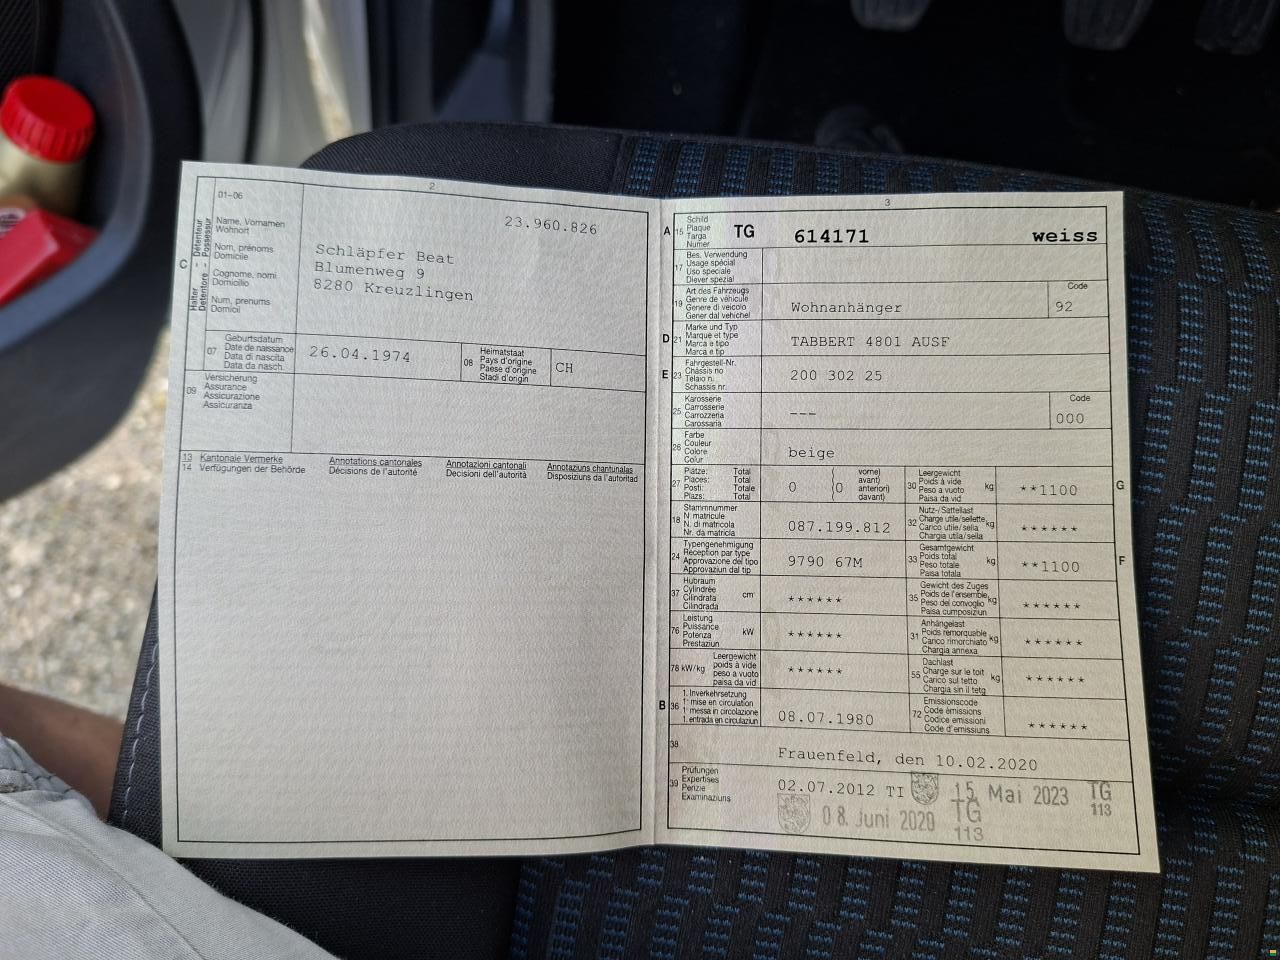 2
01-06
23.960.826
C
Halter - Détenteur
Detentore - Possessur
Name, Vornamen
Wohnort
Nom, prénoms
Domicile
Cognome, nomi
Domicilio
Num, prenums
Domicil
Schläpfer Beat
Blumenweg 9
8280 Kreuzlingen
07
Geburtsdatum
Date de naissance
Data di nascita
Data da nasch.
26.04.1974
08
Heimatstaat
Pays d'origine
Paese d'origine
Stadi d'origin
CH
09
Versicherung
Assurance
Assicurazione
Assicuranza
13 Kantonale Vermerke
14 Verfügungen der Behörde
Annotations cantonales
Décisions de l'autorité
Annotazioni cantonali
Decisioni dell'autorità
Annotaziuns chantunalas
Disposiziuns da l'autoritad
3
A
15
Schild
Plaque
Targa
Numer
TG 614171 weiss
17
Bes. Verwendung
Usage spécial
Uso speciale
Diever spezial
19
Art des Fahrzeugs
Genre de véhicule
Genere di veicolo
Gener dal vehichel
Wohnanhänger
Code
92
D
21
Marke und Typ
Marque et type
Marca e tipo
Marca e tip
TABBERT 4801 AUSF
E
23
Fahrgestell-Nr.
Châssis no
Telaio n.
Schassis nr.
200 302 25
25
Karosserie
Carrosserie
Carrozzeria
Carossaria
---
Code
000
26
Farbe
Couleur
Colore
Colur
beige
27
Plätze: Total
Places: Total
Posti: Totale
Plazs: Total
0 (0
vorne)
avant)
anteriori)
davant)
30
Leergewicht
Poids à vide
Peso a vuoto
Paisa da vid
kg
**1100
G
18
Stammnummer
N matricule
N. di matricola
Nr. da matricla
087.199.812
32
Nutz-/Sattellast
Charge utile/sellette
Carico utile/sella
Chargia utila/sella
kg
******
24
Typengenehmigung
Réception par type
Approvazione del tipo
Approvaziun dal tip
9790 67M
33
Gesamtgewicht
Poids total
Peso totale
Paisa totala
kg
**1100
F
37
Hubraum
Cylindrée
Cilindrata
Cilindrada
cm³
******
35
Gewicht des Zuges
Poids de l'ensemble
Peso del convoglio
Paisa cumposiziun
kg
******
76
Leistung
Puissance
Potenza
Prestaziun
kW
******
31
Anhängelast
Poids remorquable
Carico rimorchiato
Chargia annexa
kg
******
78 kW/kg
Leergewicht
poids à vide
peso a vuoto
paisa da vid
******
55
Dachlast
Charge sur le toit
Carico sul tetto
Chargia sin il tetg
kg
******
B
36
1. Inverkehrsetzung
1re mise en circulation
1a messa in circolazione
1. entrada en circulaziun
08.07.1980
72
Emissionscode
Code émissions
Codice emissioni
Code d'emissiuns
******
38
Frauenfeld, den 10.02.2020
39
Prüfungen
Expertises
Perizie
Examinaziuns
02.07.2012 TI
15. Mai 2023 TG
113
08. Juni 2020 TG
113